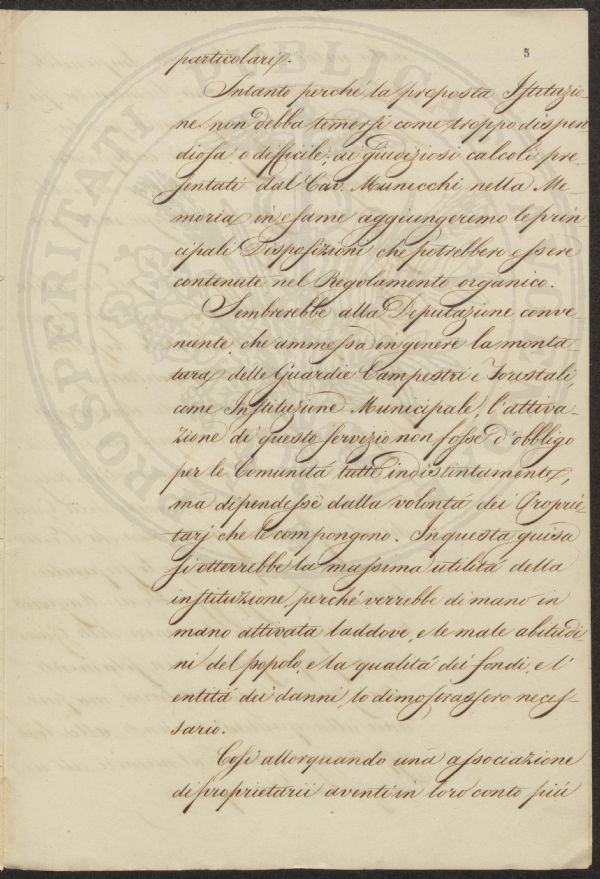 5
particolari.
Intanto perché la proposta Istituzio-
ne non debba temersi come troppo dispen
diosa o difficile, ai giudiziosi calcoli pre-
sentati dal Cav. Municchi nella Me-
moria in esame aggiungeremo le prin
cipali Disposizioni che potrebbero essere
contenute nel Regolamento organico.
Sembrerebbe alla Deputazione conve
niente, che ammessa in genere la monta-
tura delle Guardie Campestri e Forestali,
come Instituzione Municipale, l'attiva-
zione di questo servizio non fosse d'obbligo
per le Comunità tutte indistintamente,
ma dipendesse dalla volontà dei Proprie-
tarj che le compongono. In questa guisa
si otterrebbe la massima utilità della
instituzione, perché verrebbe di mano in
mano attivata laddove, e le male abitudi-
ni del popolo, e la qualità dei fondi, e l'
entità dei danni, lo dimostrassero neces-
sario.
Così allorquando una associazione
di proprietarii aventi in loro conto più
PROSPERITATI PUBLICAE